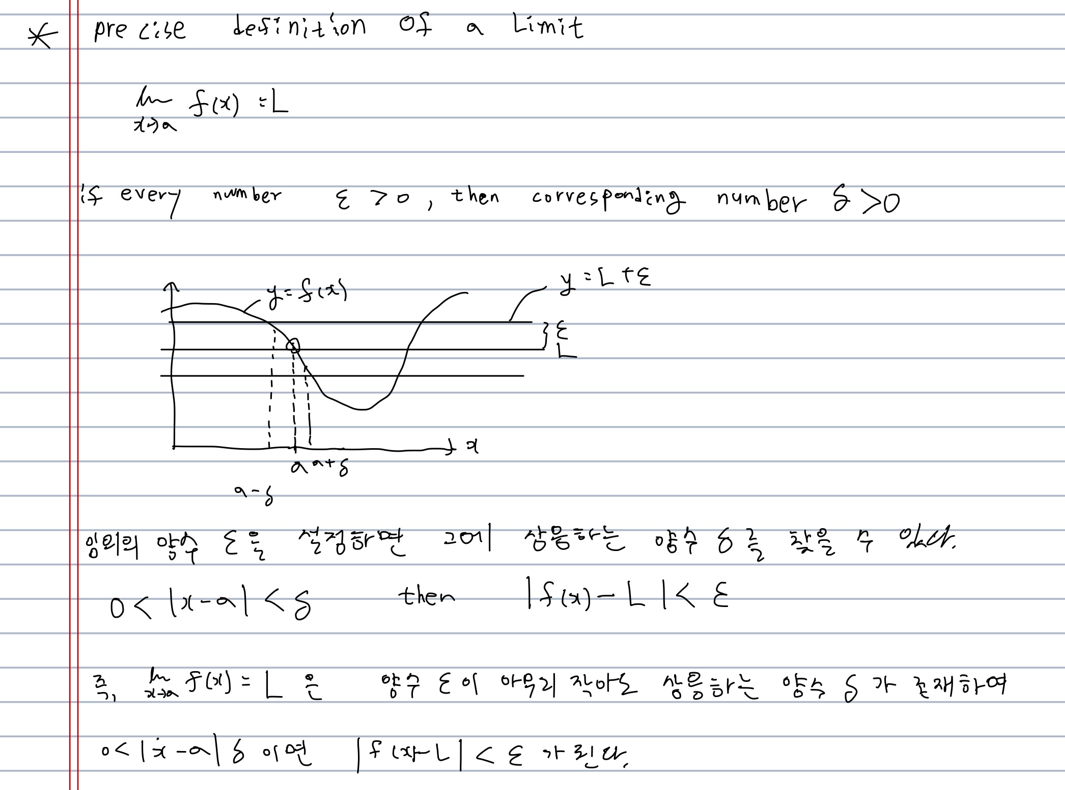 * precise definition of a Limit
lim x→a f(x) = L
if every number ε > 0, then corresponding number δ > 0
y = L + ε
y = f(x)
ε
L
x
a a+δ
a-δ
임의의 양수 ε을 설정하면 그에 상응하는 양수 δ를 찾을 수 있다.
0 < |x-a| < δ then |f(x) - L| < ε
즉, lim x→a f(x) = L 은 양수 ε이 아무리 작아도 상응하는 양수 δ가 존재하여
0 < |x-a| δ 이면 |f(x)-L| < ε 가 된다.